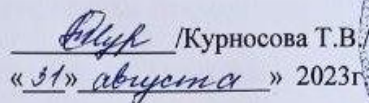 /Курносова Т.В./
«31» августа » 2023г